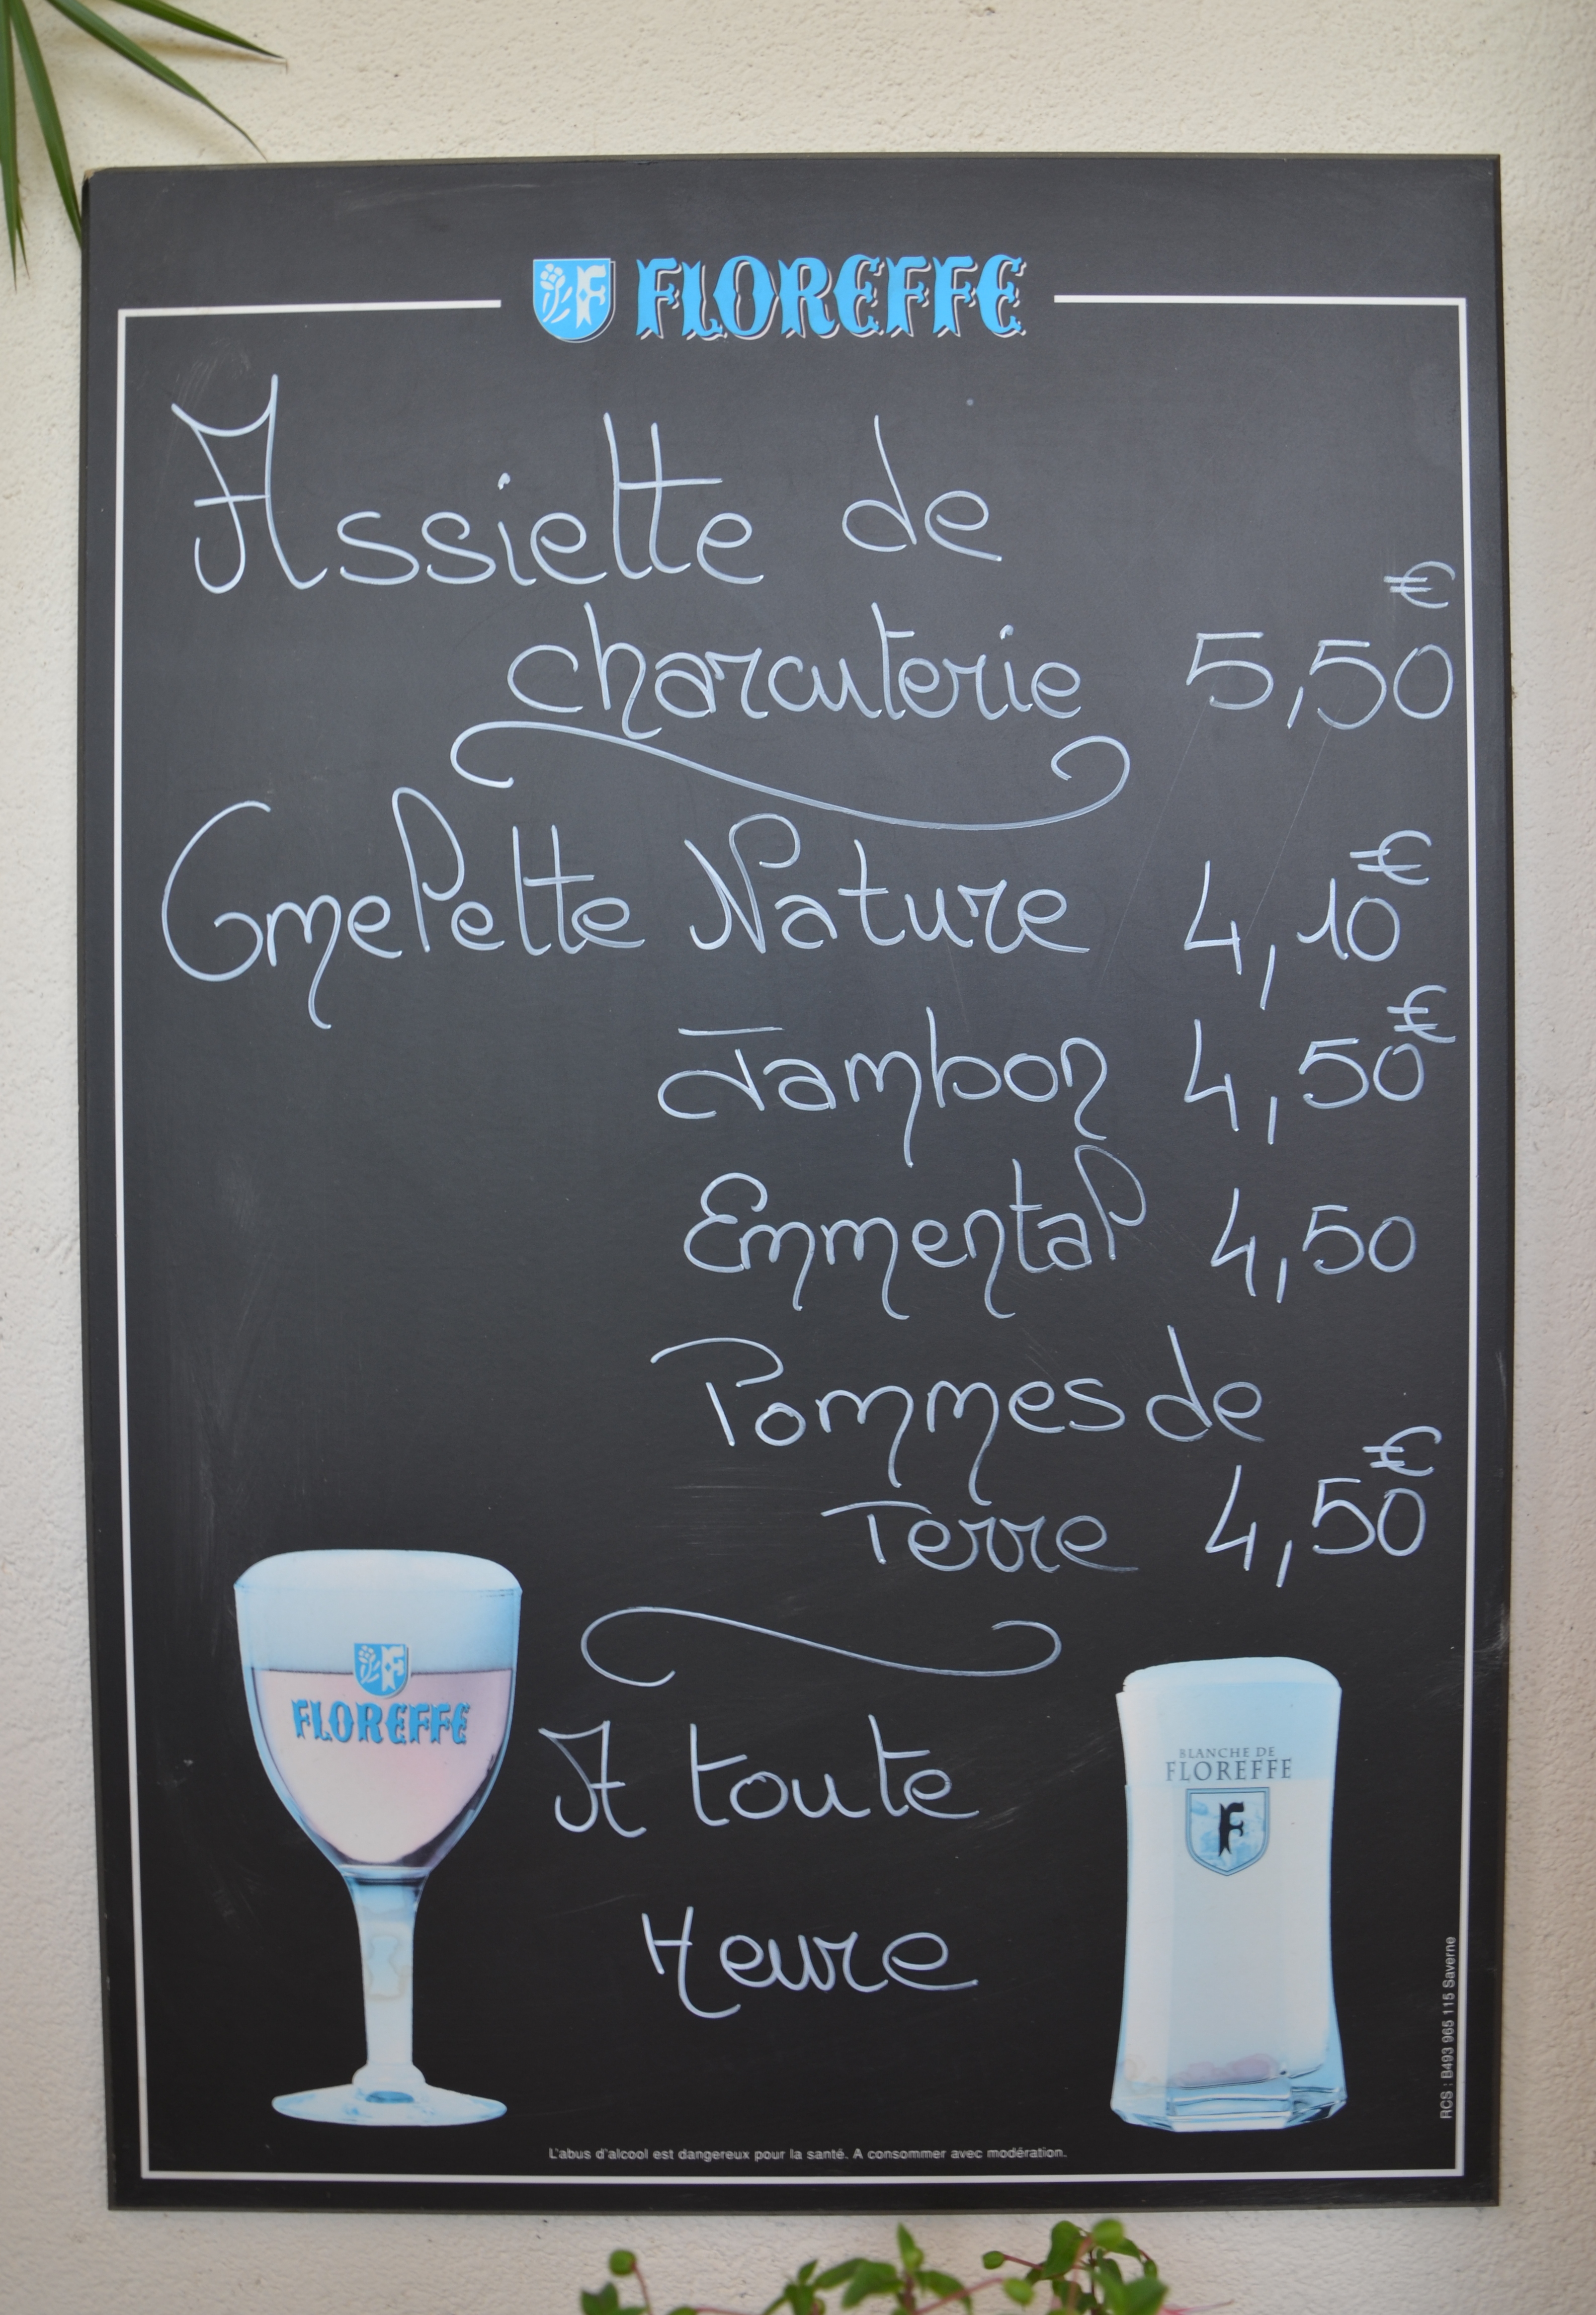 FLOREFFE
Assiette de
€
charcuterie 5,50
Omelette Nature 4,10€
Jambon 4,50€
Emmental 4,50
Pommes de
Terre 4,50€
A toute
Heure
F FLOREFFE
BLANCHE DE
FLOREFFE
F
RCS : B493 965 115 Saverne
L'abus d'alcool est dangereux pour la santé. A consommer avec modération.